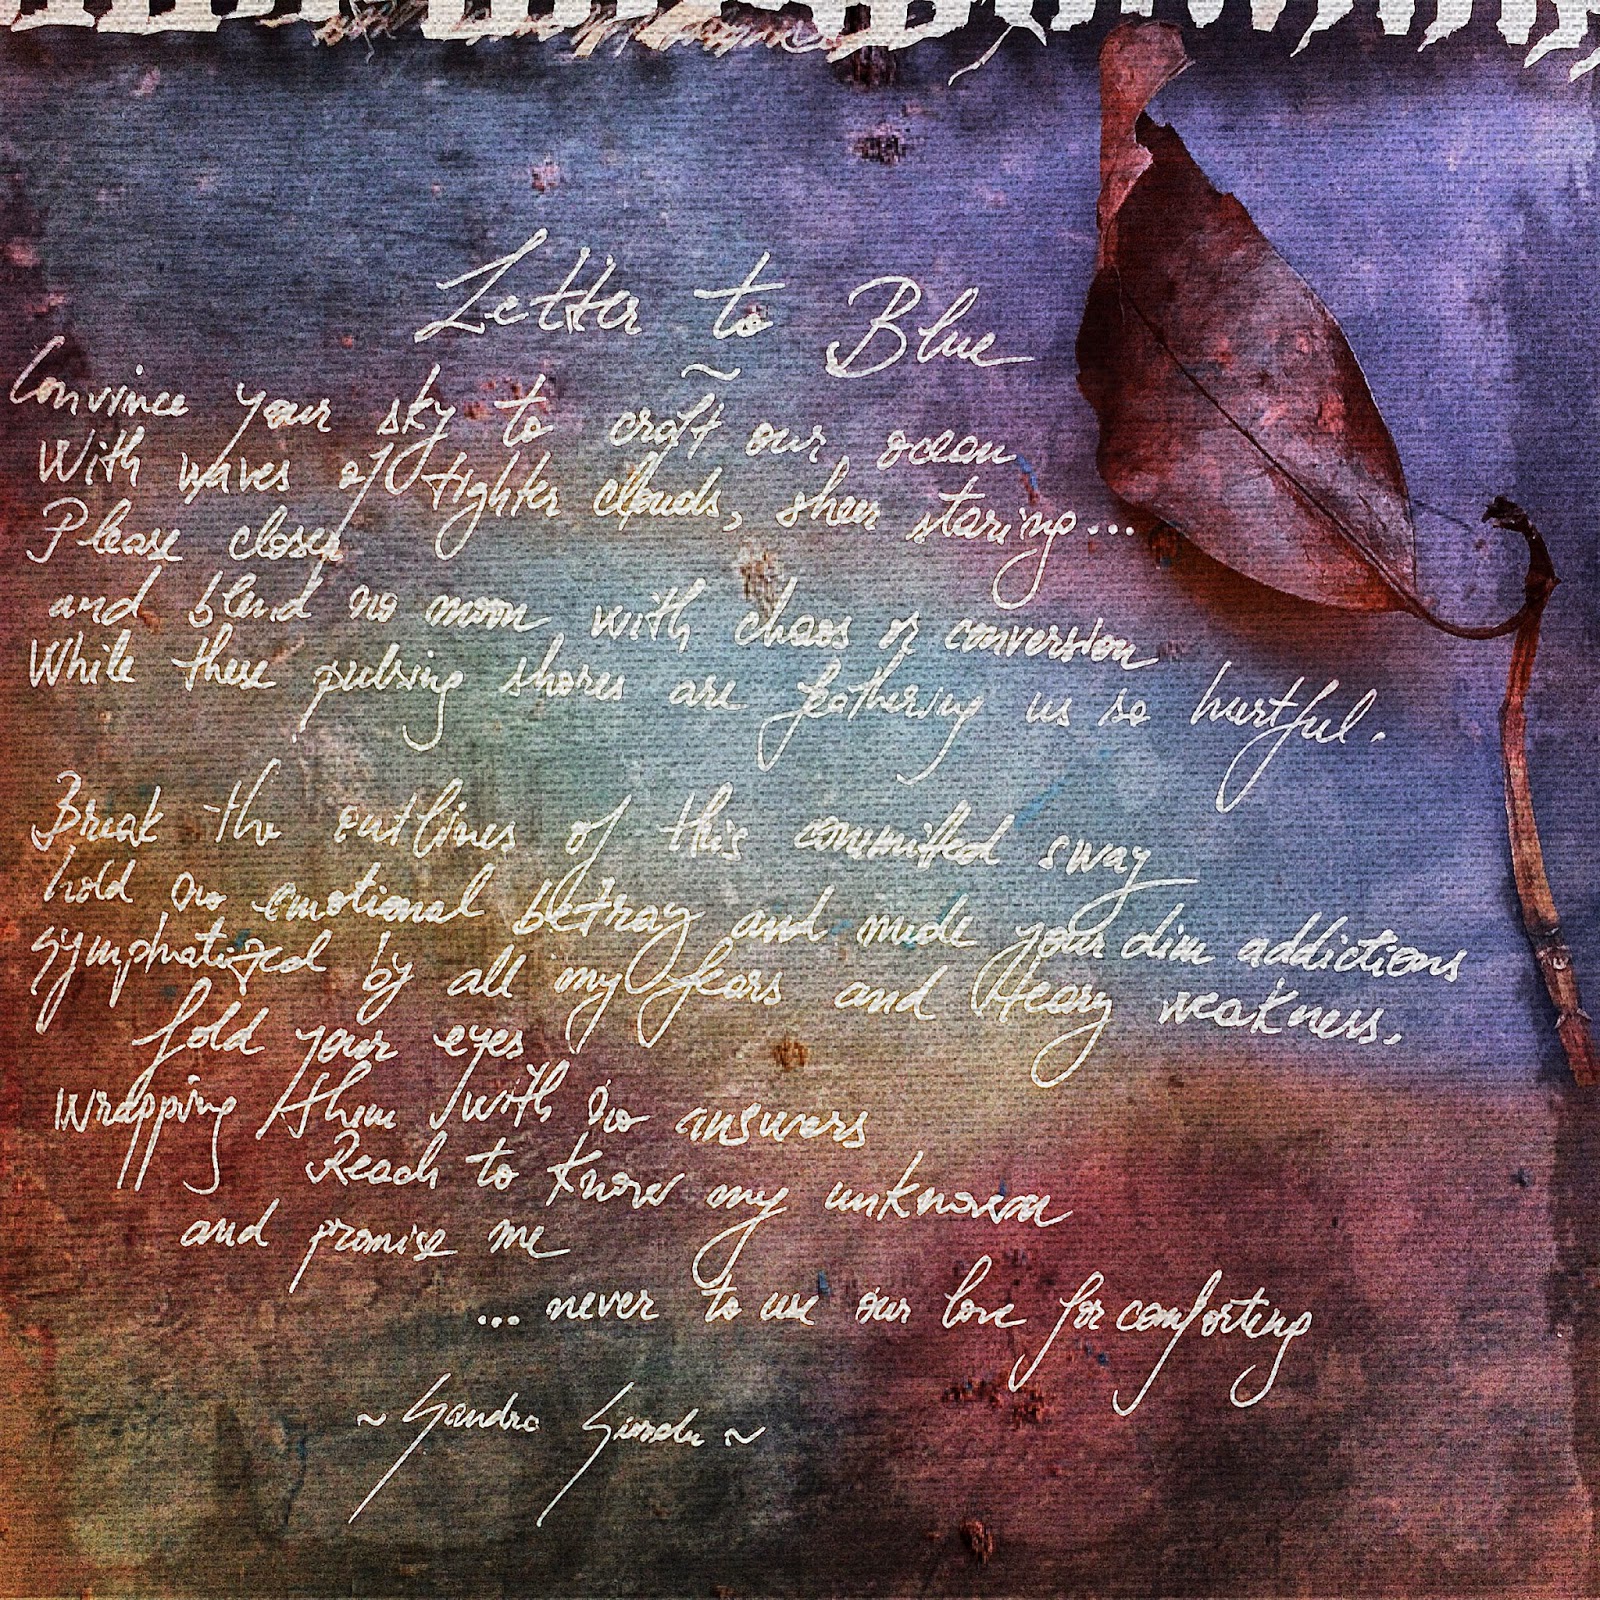 Letter to Blue
~
Convince your sky to craft our ocean
With waves of tighter clouds, sheer staring...
Please closer
and blend no moon with chaos or conversion
While these pulsing shores are feathering us so hurtful.
Break the outlines of this committed sway
hold no emotional betray and mute your dim addictions
symphatized by all my fears and Heavy weakness.
fold your eyes
wrapping them with no answers
Reach to know my unknown
and promise me
... never to use our love for comforting
~ Sandra ~